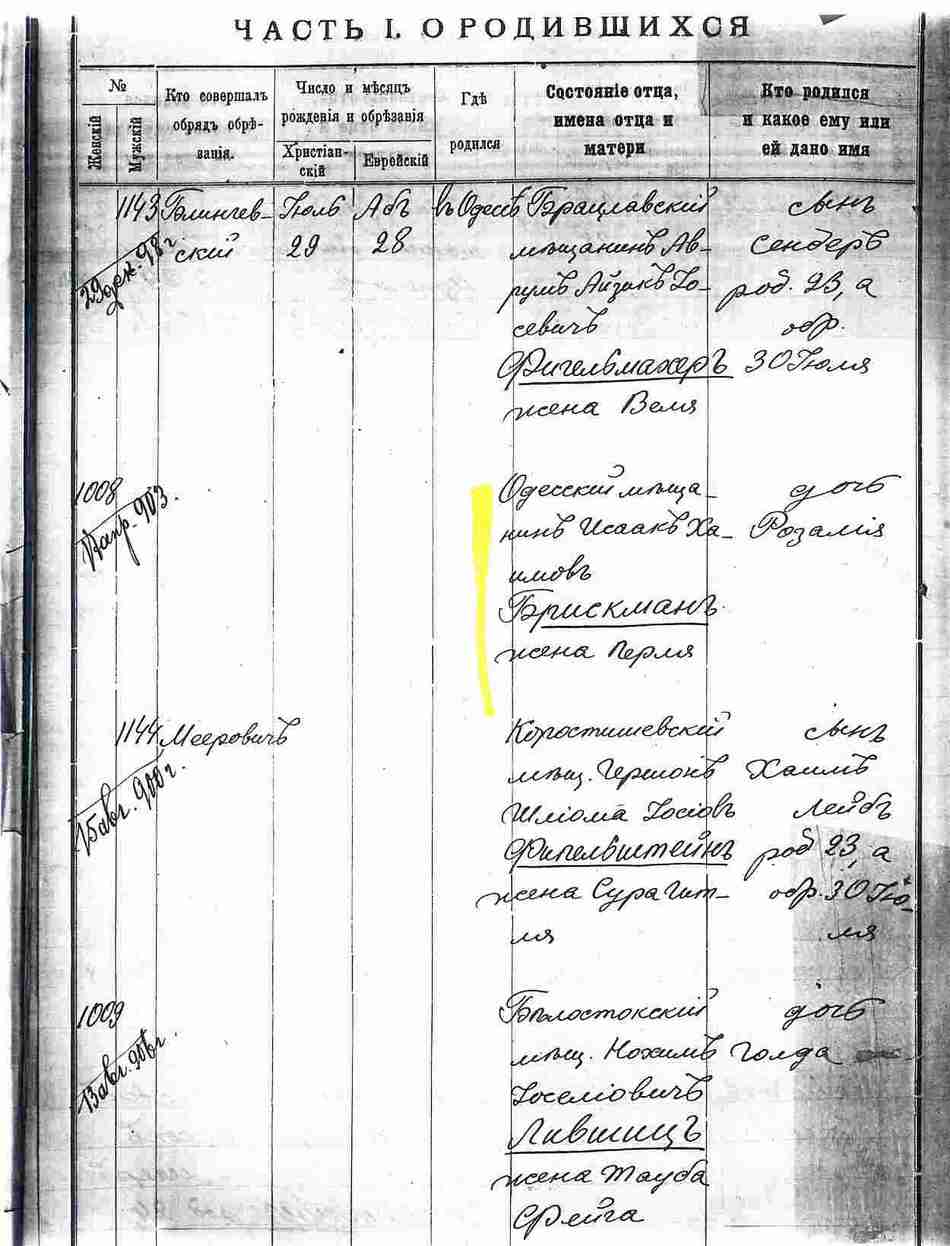 ЧАСТЬ I. О РОДИВШИХСЯ
№
Женскій
Мужскій
Кто совершалъ
обрядъ обрѣ-
занія.
Число и мѣсяцъ
рожденія и обрѣзанія
Христіан-
скій
Еврейскій
Гдѣ
родился
Состояніе отца,
имена отца и
матери
Кто родился
и какое ему или
ей дано имя
1143
29 дек. 98 г.
Блингев-
скій
Іюль
29
Абъ
28
въ Одессѣ
Брацлавскій
мѣщанинъ Ав-
румъ Айзикъ Іо-
севичъ
Фигельмахеръ
жена Веля
сынъ
Сендеръ
род. 23, а
обр.
30 Іюля
1008
апр. 903.
Одесскій мѣща-
нинъ Исаакъ Ха-
имовъ
Брискманъ
жена Перля
дочь
Розалія
1144
15 авг. 900 г.
Мееровичъ
Коростишевскій
мѣщ. Гершонъ
Шліома Іосіовъ
Фигельштейнъ
жена Сура Гит-
ля
сынъ
Хаимъ
Лейбъ
род 23, а
обр. 30 Ію-
ля
1009
13 авг. 906 г.
Бѣлостокскій
мѣщ. Нохимъ
Іоселіовичъ
Лившицъ
жена Тауба
Фейга
дочь
Голда